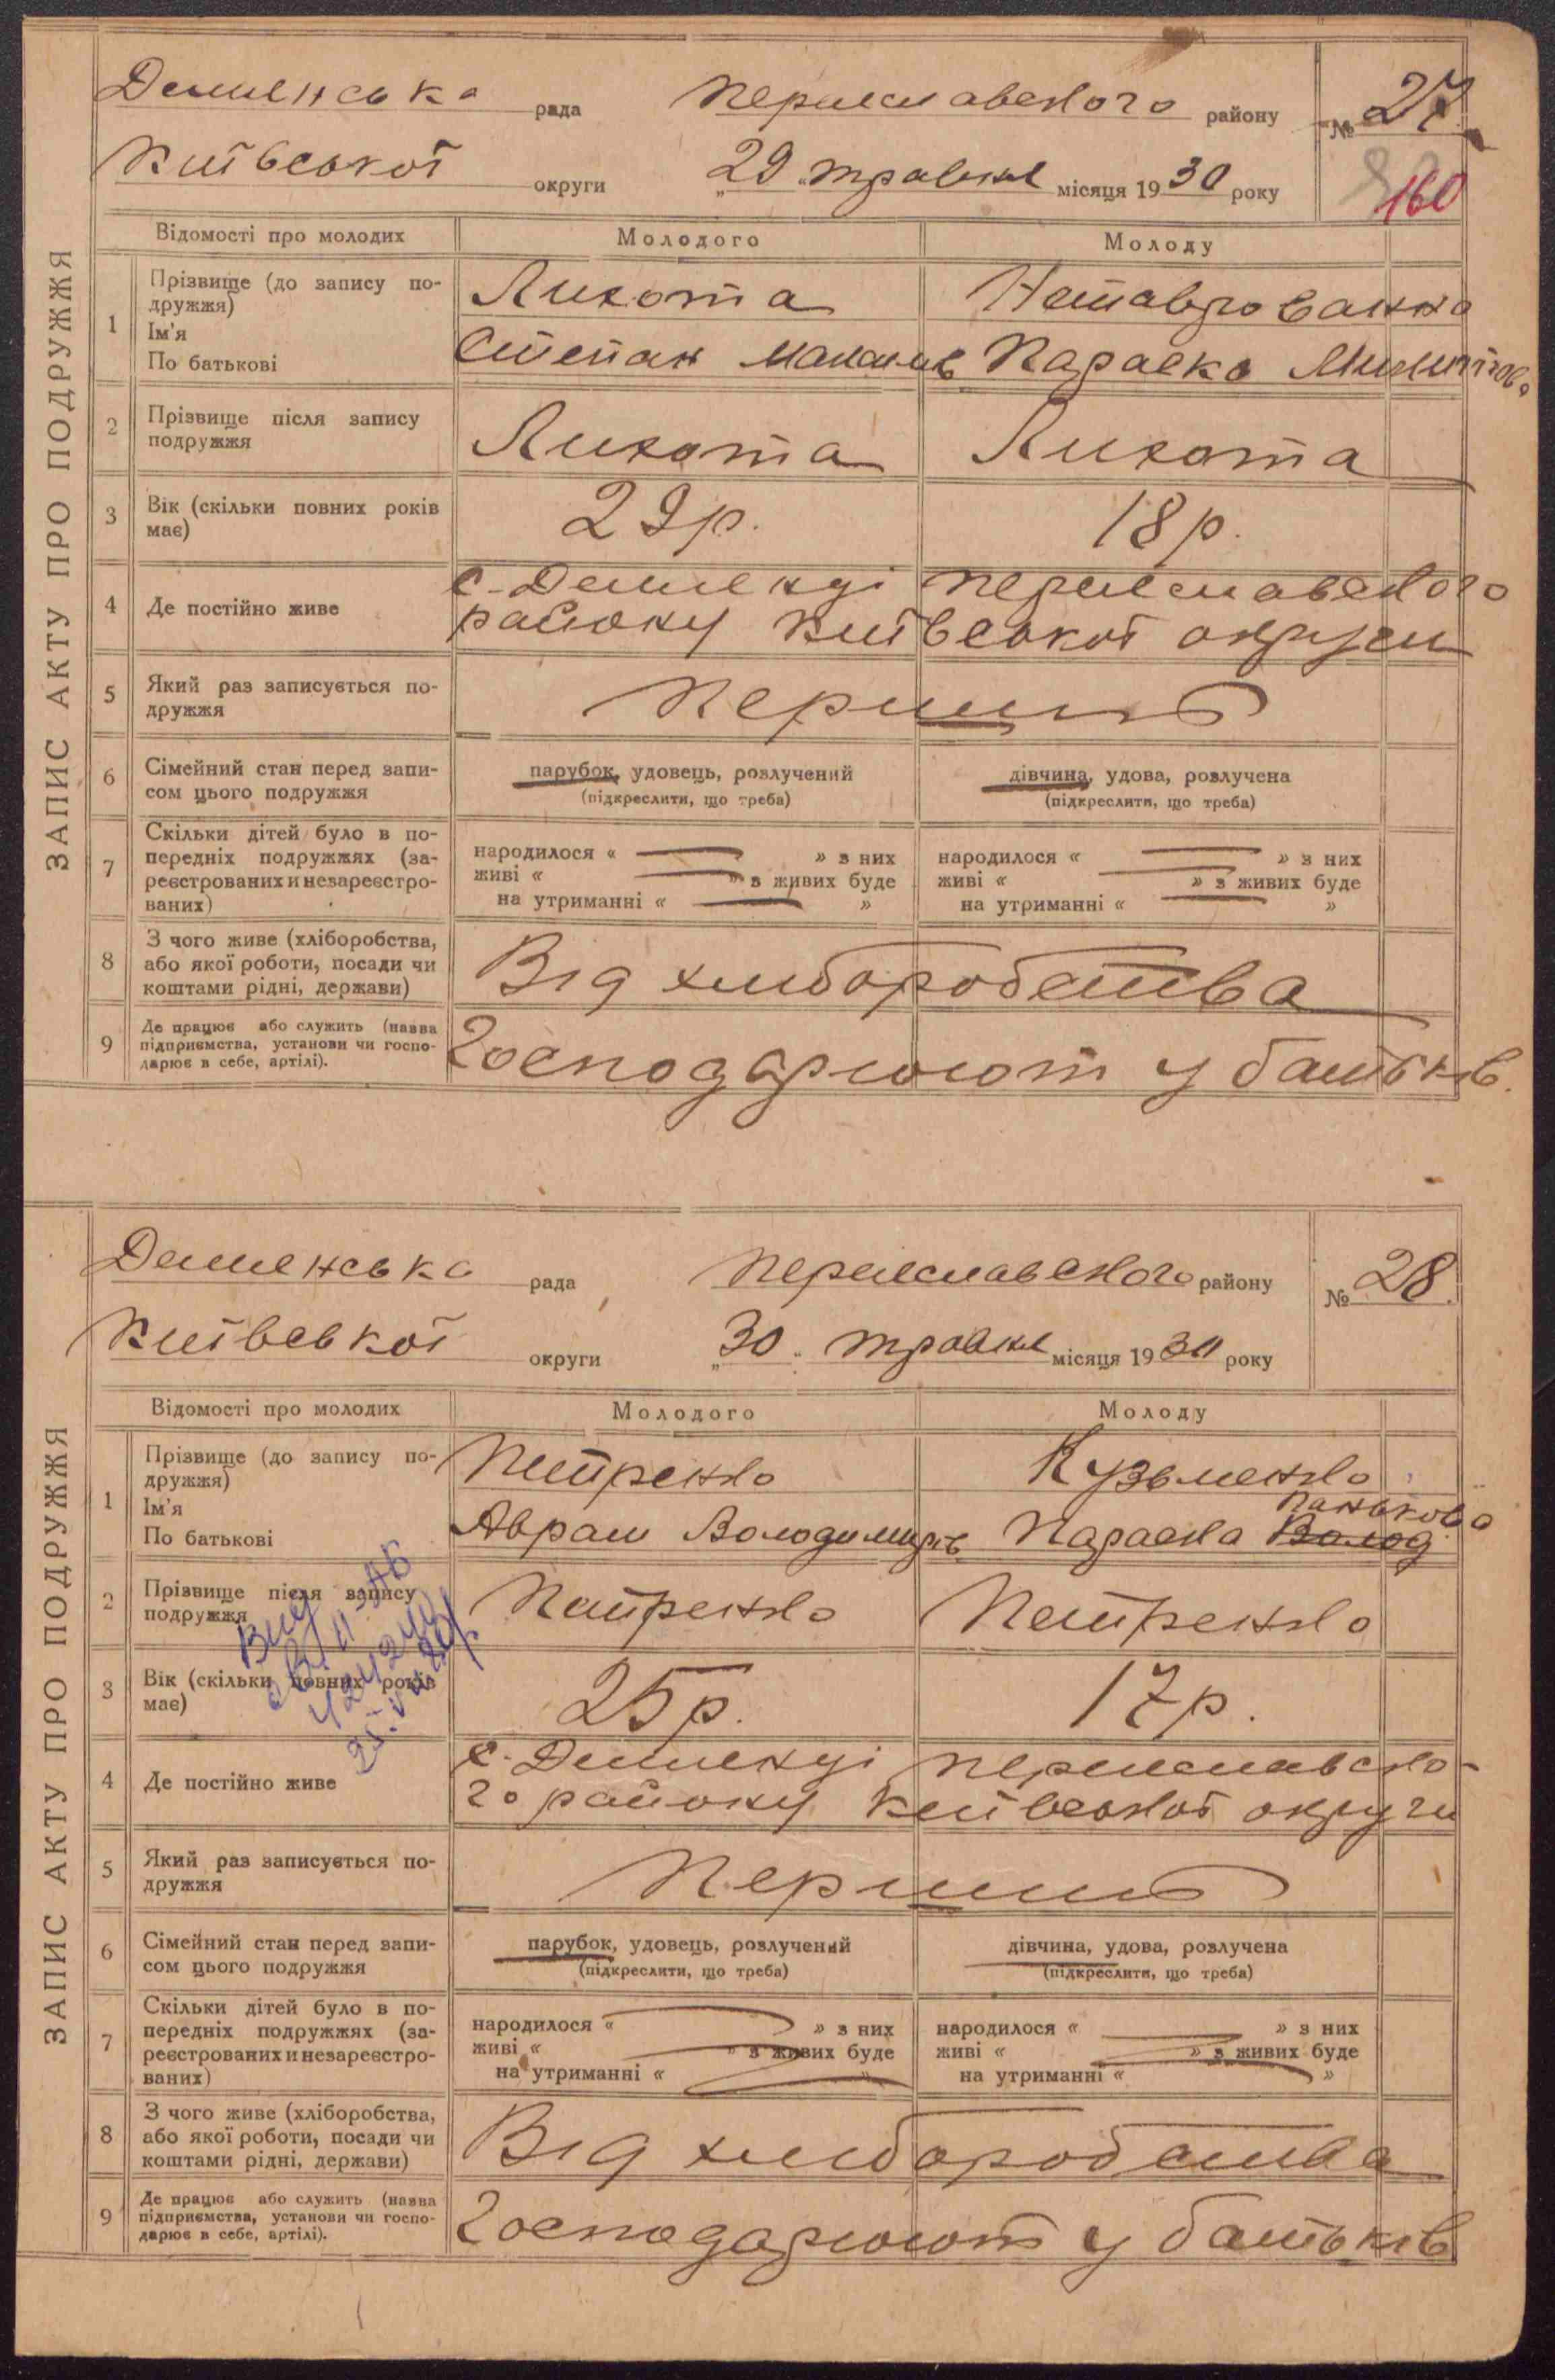 ЗАПИС АКТУ ПРО ПОДРУЖЖЯ
Демленська рада Переяславського району № 27
Київської округи „29" травня місяця 1930 року
160
Відомості про молодих Молодого Молоду
1 Прізвище (до запису по-
дружжя) Лихота
Ім'я
По батькові Степан Параска
2 Прізвище після запису
подружжя Лихота Лихота
3 Вік (скільки повних років
має) 29р. 18р.
4 Де постійно живе с. Демленці Переяславського
району Київської округи
5 Який раз записується по-
дружжя Перший
6 Сімейний стан перед запи-
сом цього подружжя парубок, удовець, розлучений дівчина, удова, розлучена
(підкреслити, що треба) (підкреслити, що треба)
7 Скільки дітей було в по-
передніх подружжях (за-
реєстрованих и незареєстро-
ваних)
народилося « — » з них народилося « — » з них
живі « — » з живих буде живі « — » з живих буде
на утриманні « — » на утриманні « — »
8 З чого живе (хліборобства,
або якої роботи, посади чи
коштами рідні, держави) Від хліборобства
9 Де працює або служить (назва
підприємства, установи чи госпо-
дарює в себе, артілі). Господарюют у батьків.
ЗАПИС АКТУ ПРО ПОДРУЖЖЯ
Демленська рада Переяславського району № 28
Київської округи „30" травня місяця 1930 року
Відомості про молодих Молодого Молоду
1 Прізвище (до запису по-
дружжя) Петренко Кузьменко
Ім'я Панькова
По батькові Аврам Володимирів Параска Волод
2 Прізвище після запису
подружжя Петренко Петренко
3 Вік (скільки повних років
має) 25р. 17р.
4 Де постійно живе с. Демленці Переяславсько-
го району Київської округи
5 Який раз записується по-
дружжя Перший
6 Сімейний стан перед запи-
сом цього подружжя парубок, удовець, розлучений дівчина, удова, розлучена
(підкреслити, що треба) (підкреслити, що треба)
7 Скільки дітей було в по-
передніх подружжях (за-
реєстрованих и незареєстро-
ваних)
народилося « — » з них народилося « — » з них
живі « — » з живих буде живі « — » з живих буде
на утриманні « — » на утриманні « — »
8 З чого живе (хліборобства,
або якої роботи, посади чи
коштами рідні, держави) Від хліборобства
9 Де працює або служить (назва
підприємства, установи чи госпо-
дарює в себе, артілі). Господарюют у батьків